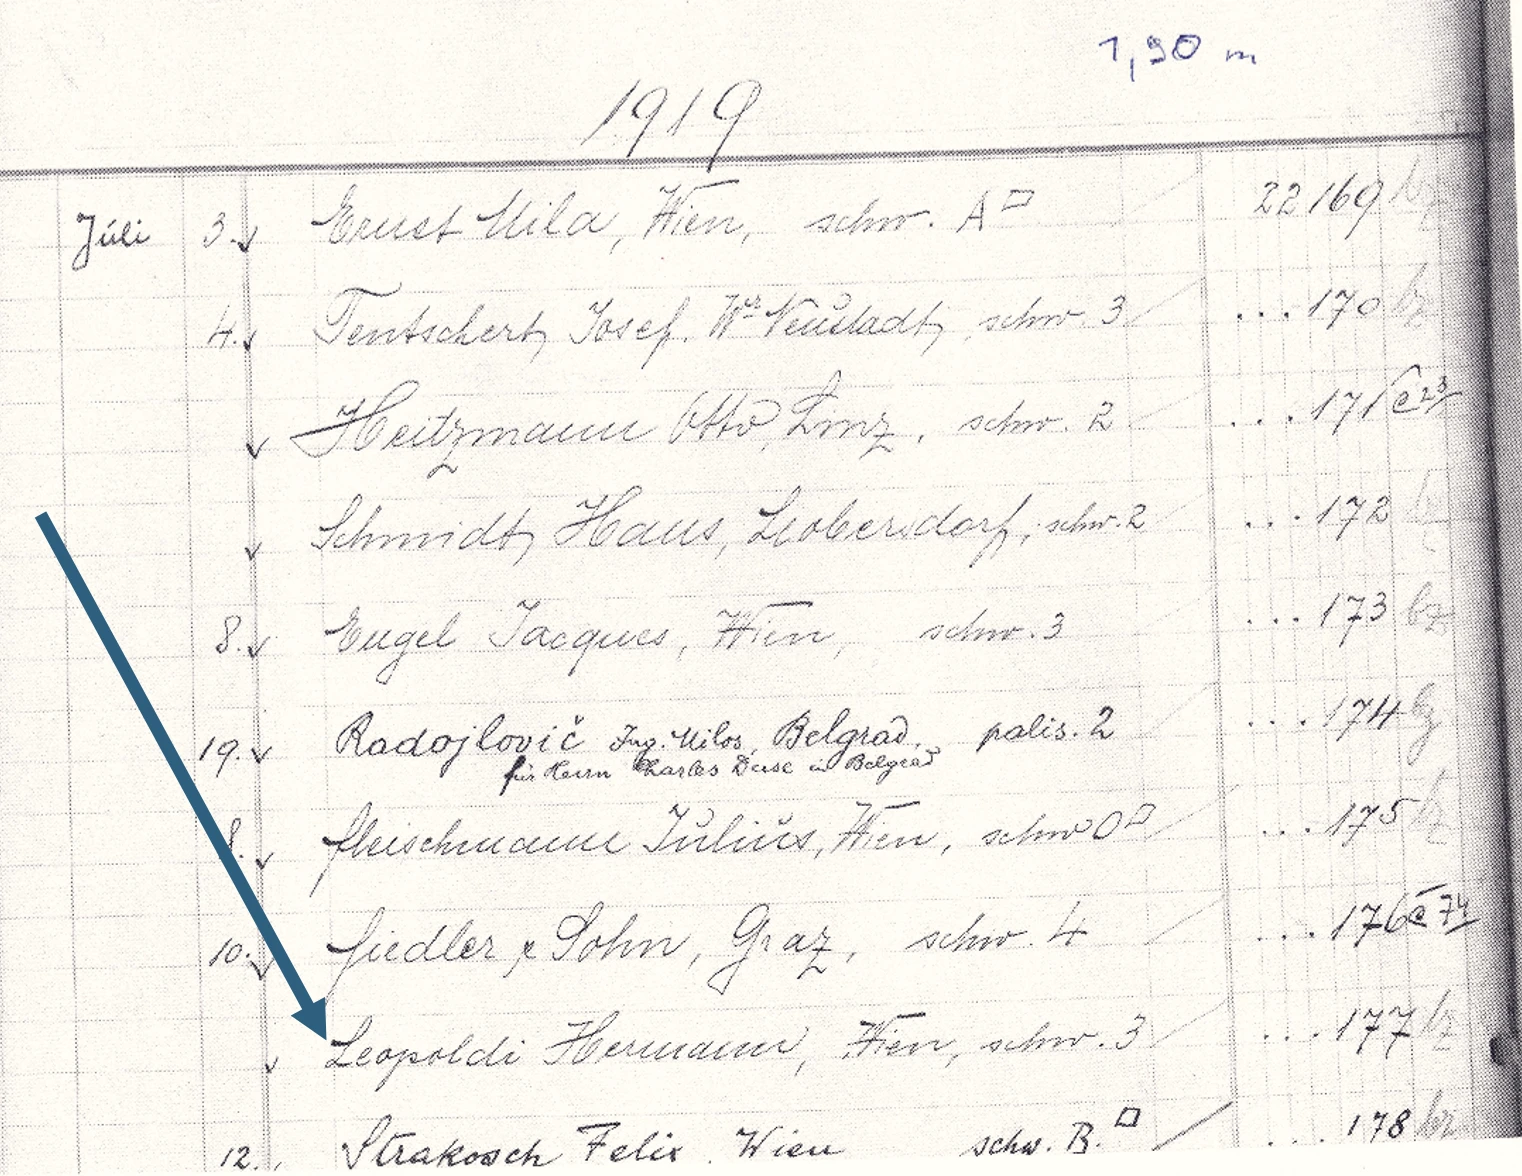 1,90 m
1919
Júli 3. Ernst Mila, Wien, schw. A 22169 bz
4. Tentschert, Josef. Wr Neustadt, schw. 3 ... 170 bz
Heitzmann Otto, Linz, schw. 2 ... 171 23
Schmidt, Hans, Leobersdorf, schw. 2 ... 172
8. Engel Jacques, Wien, schw. 3 ... 173 bz
19. Radojlovič Ing. Milos, Belgrad, palis. 2 ... 174 bz
für Herrn Charles in Belgrad
8. Fleischmann Julius, Wien, schw ... 175 bz
10. Fiedler & Sohn, Graz, schw. 4 ... 176 74
Leopoldi Hermann, Wien, schw. 3 ... 177 bz
12. Strakosch Felix, Wien schw. B. ... 178 bz